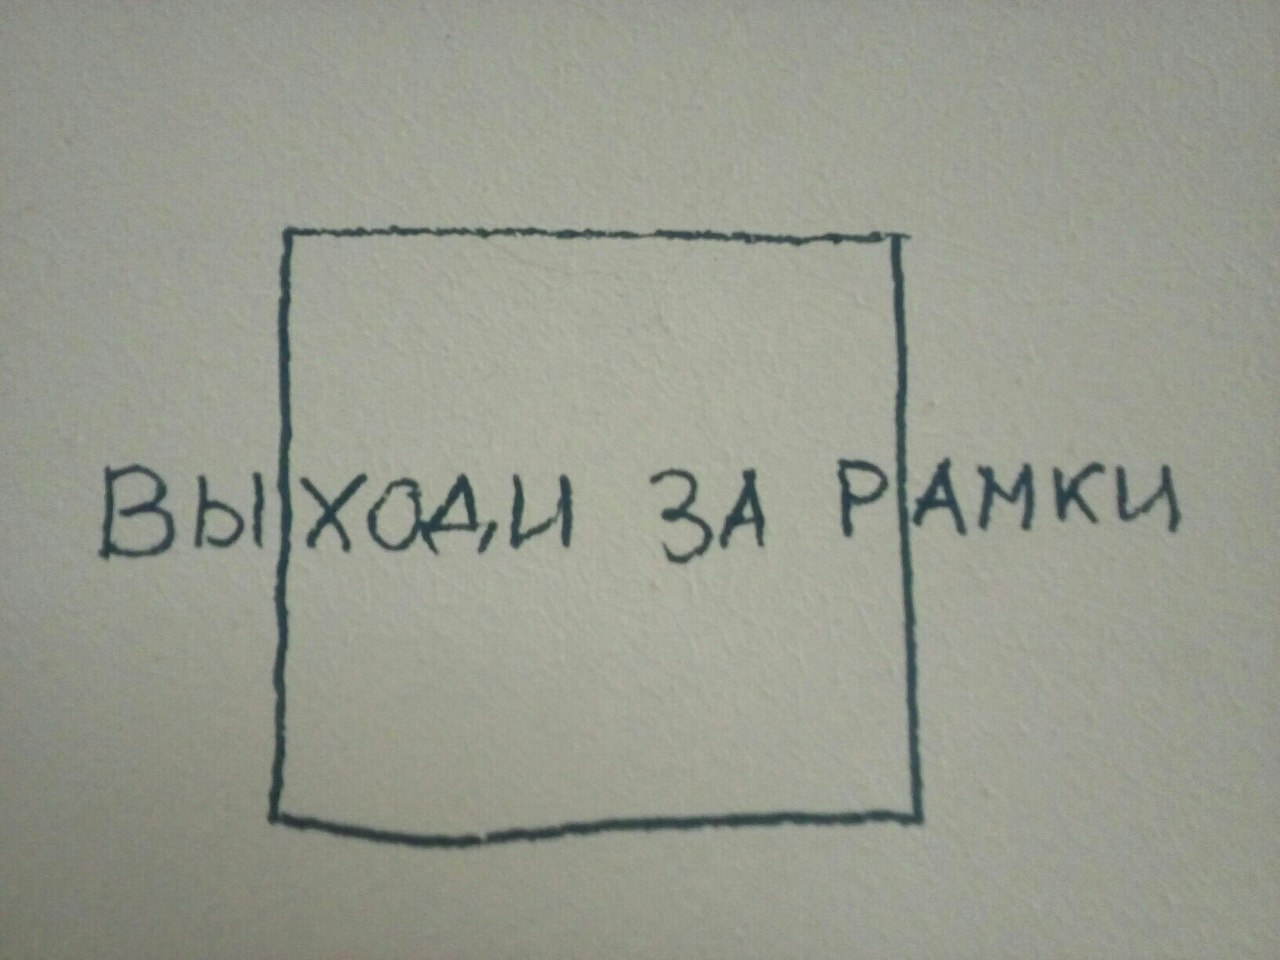 ВЫХОДИ ЗА РАМКИ